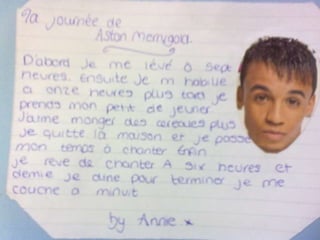 La journée de
Aston Merrygold.
D'abord je me lévé à sept
heures. Ensuite je m habille
a onze heures plus tard je
prends mon petit de jeuner
J'aime manger des cereales plus
je quitte la maison et je passe
mon temps à chanter Enfin
je reve de chanter A six heures et
demie je dine pour terminer je me
couche a minuit
by Annie x